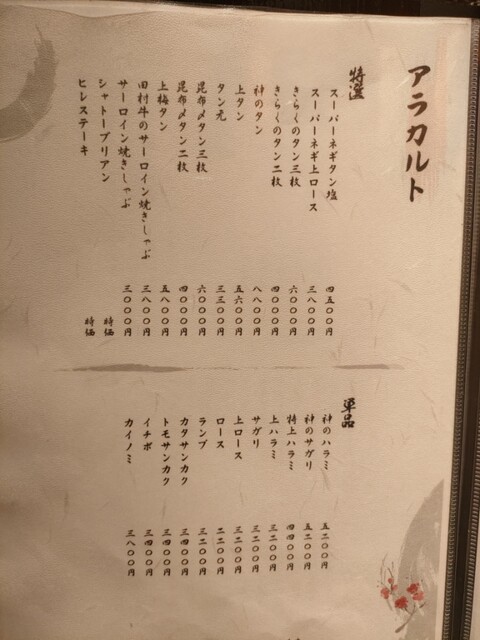 アラカルト
特選
スーパーネギタン塩 四五〇〇円
スーパーネギ上ロース 三八〇〇円
きらくのタン三枚 六〇〇〇円
きらくのタン二枚 四〇〇〇円
神のタン 八八〇〇円
上タン 五六〇〇円
タン元 三三〇〇円
昆布〆タン三枚 六〇〇〇円
昆布〆タン二枚 四〇〇〇円
上梅タン 五八〇〇円
田村牛のサーロイン焼きしゃぶ 三八〇〇円
サーロイン焼きしゃぶ 三〇〇〇円
シャトーブリアン 特価
ヒレステーキ 特価
単品
神のハラミ 五二〇〇円
神のサガリ 五二〇〇円
特上ハラミ 四四〇〇円
上ハラミ 三二〇〇円
サガリ 三二〇〇円
上ロース 三二〇〇円
ロース 二二〇〇円
ランプ 三二〇〇円
カタサンカク 三四〇〇円
トモサンカク 三四〇〇円
イチボ 三四〇〇円
カイノミ 三八〇〇円